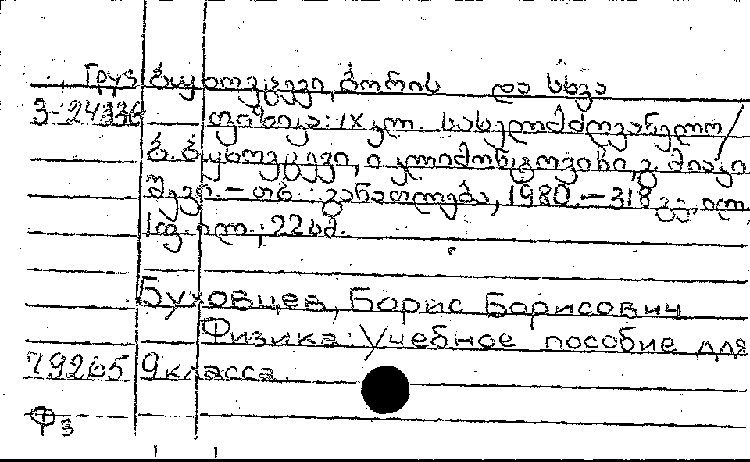 Груз ბუხოვცევი, ბორის და სხვა
3-24336 ფიზიკა: IX კლ. სახელმძღვანელო /
ბ. ბუხოვცევი, ი. კლიმონტოვიჩი, გ. მიაკი
შევი. – თბ. განათლება, 1980. – 318 გვ., ილ,
1 ფ. ილ.; 22 სმ.
Буховцев, Борис Борисович
Физика: Учебное пособие для
79265 9 класса
Ф3